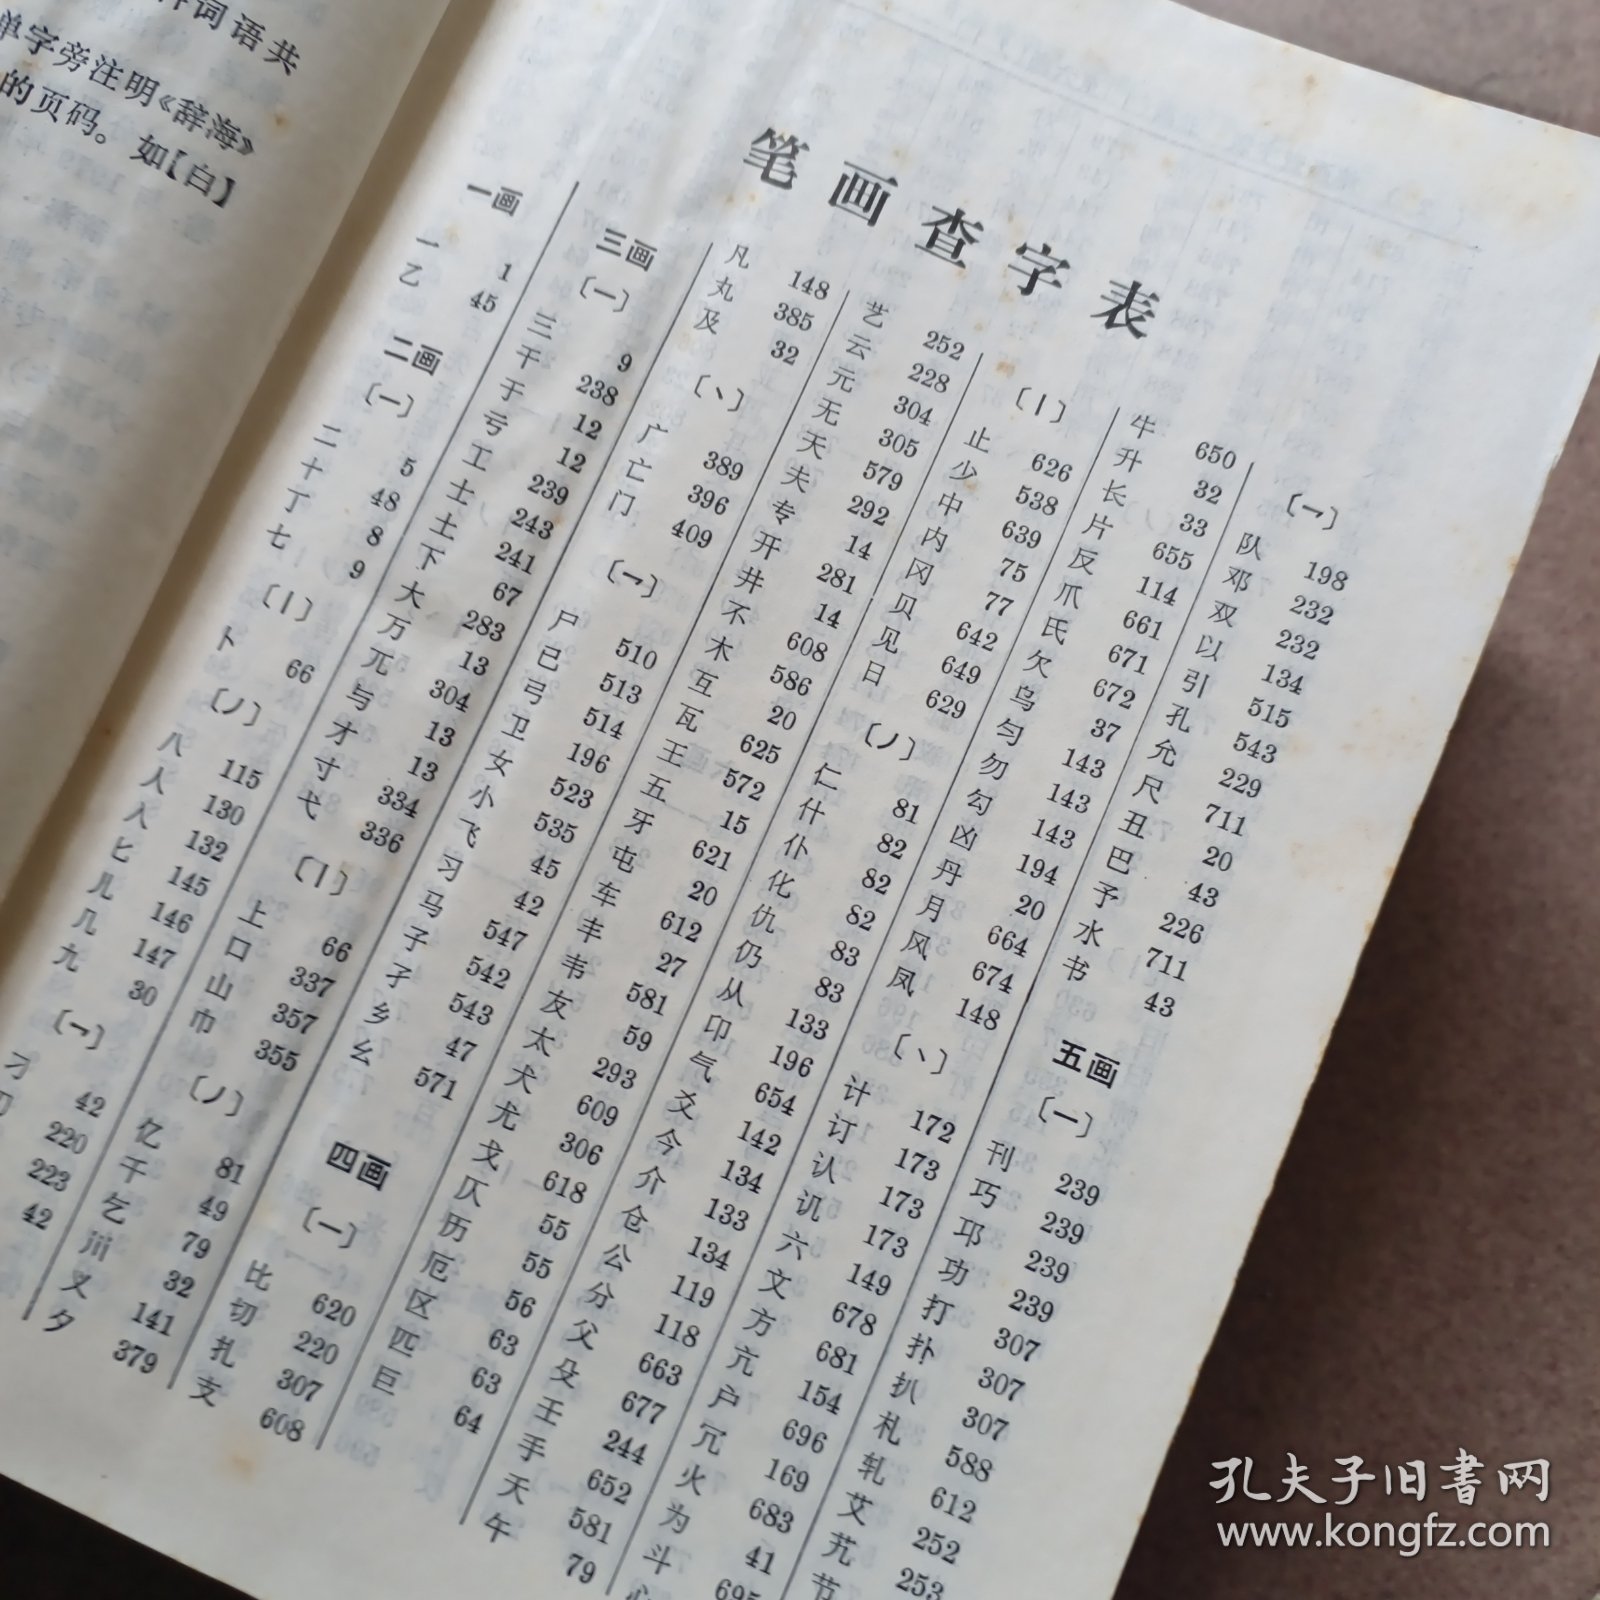 词语共
单字旁注明《辞海》
的页码。如【白】
笔画查字表
一画
一 1
乙 45
二画
〔一〕
二 5
十 48
丁 8
七 9
〔丨〕
卜 66
〔丿〕
八 115
人 130
入 132
匕 145
儿 146
几 147
九 30
〔乛〕
刁 42
220
223
42
三画
〔一〕
三 9
干 238
于 12
亏 12
工 239
士 243
土 241
下 67
大 283
万 13
兀 304
与 13
才 13
寸 334
弋 336
〔丨〕
上 66
口 337
山 357
巾 355
〔丿〕
亿 81
千 49
乞 79
川 32
义 141
夕 379
凡 148
丸 385
及 32
〔丶〕
广 389
亡 396
门 409
〔乛〕
尸 510
已 513
弓 514
卫 196
女 523
小 535
飞 45
习 42
马 547
子 542
孑 543
乡 47
幺 571
四画
〔一〕
比 620
切 220
扎 307
支 608
艺 252
云 228
元 304
无 305
天 579
夫 292
专 14
开 281
井 14
不 608
木 586
互 20
瓦 625
王 572
五 15
牙 621
屯 20
车 612
丰 27
韦 581
友 59
太 293
犬 609
尤 306
戈 618
仄 55
历 55
厄 56
区 63
匹 63
巨 64
〔丨〕
止 626
少 538
中 639
内 75
冈 77
贝 642
见 649
日 629
〔丿〕
仁 81
什 82
仆 82
化 82
仇 83
仍 83
从 133
印 196
气 654
爻 142
今 134
介 133
仓 134
公 119
分 118
父 663
殳 677
壬 244
手 652
夭 581
午 79
牛 650
升 32
长 33
片 655
反 114
爪 661
氏 671
欠 672
乌 37
匀 143
勿 143
勾 143
凶 194
丹 20
月 664
风 674
凤 148
〔丶〕
计 172
订 173
认 173
讥 173
六 149
文 678
方 681
亢 154
户 696
冗 169
火 683
为 41
斗 695
心
〔乛〕
队 198
邓 232
双 232
以 134
引 515
孔 543
允 229
尺 711
丑 20
巴 43
予 226
水 711
书 43
五画
〔一〕
刊 239
巧 239
邛 239
功 239
打 307
扑 307
扒 307
札 588
轧 612
艾 252
艽 253
节
孔夫子旧書网
www.kongfz.com